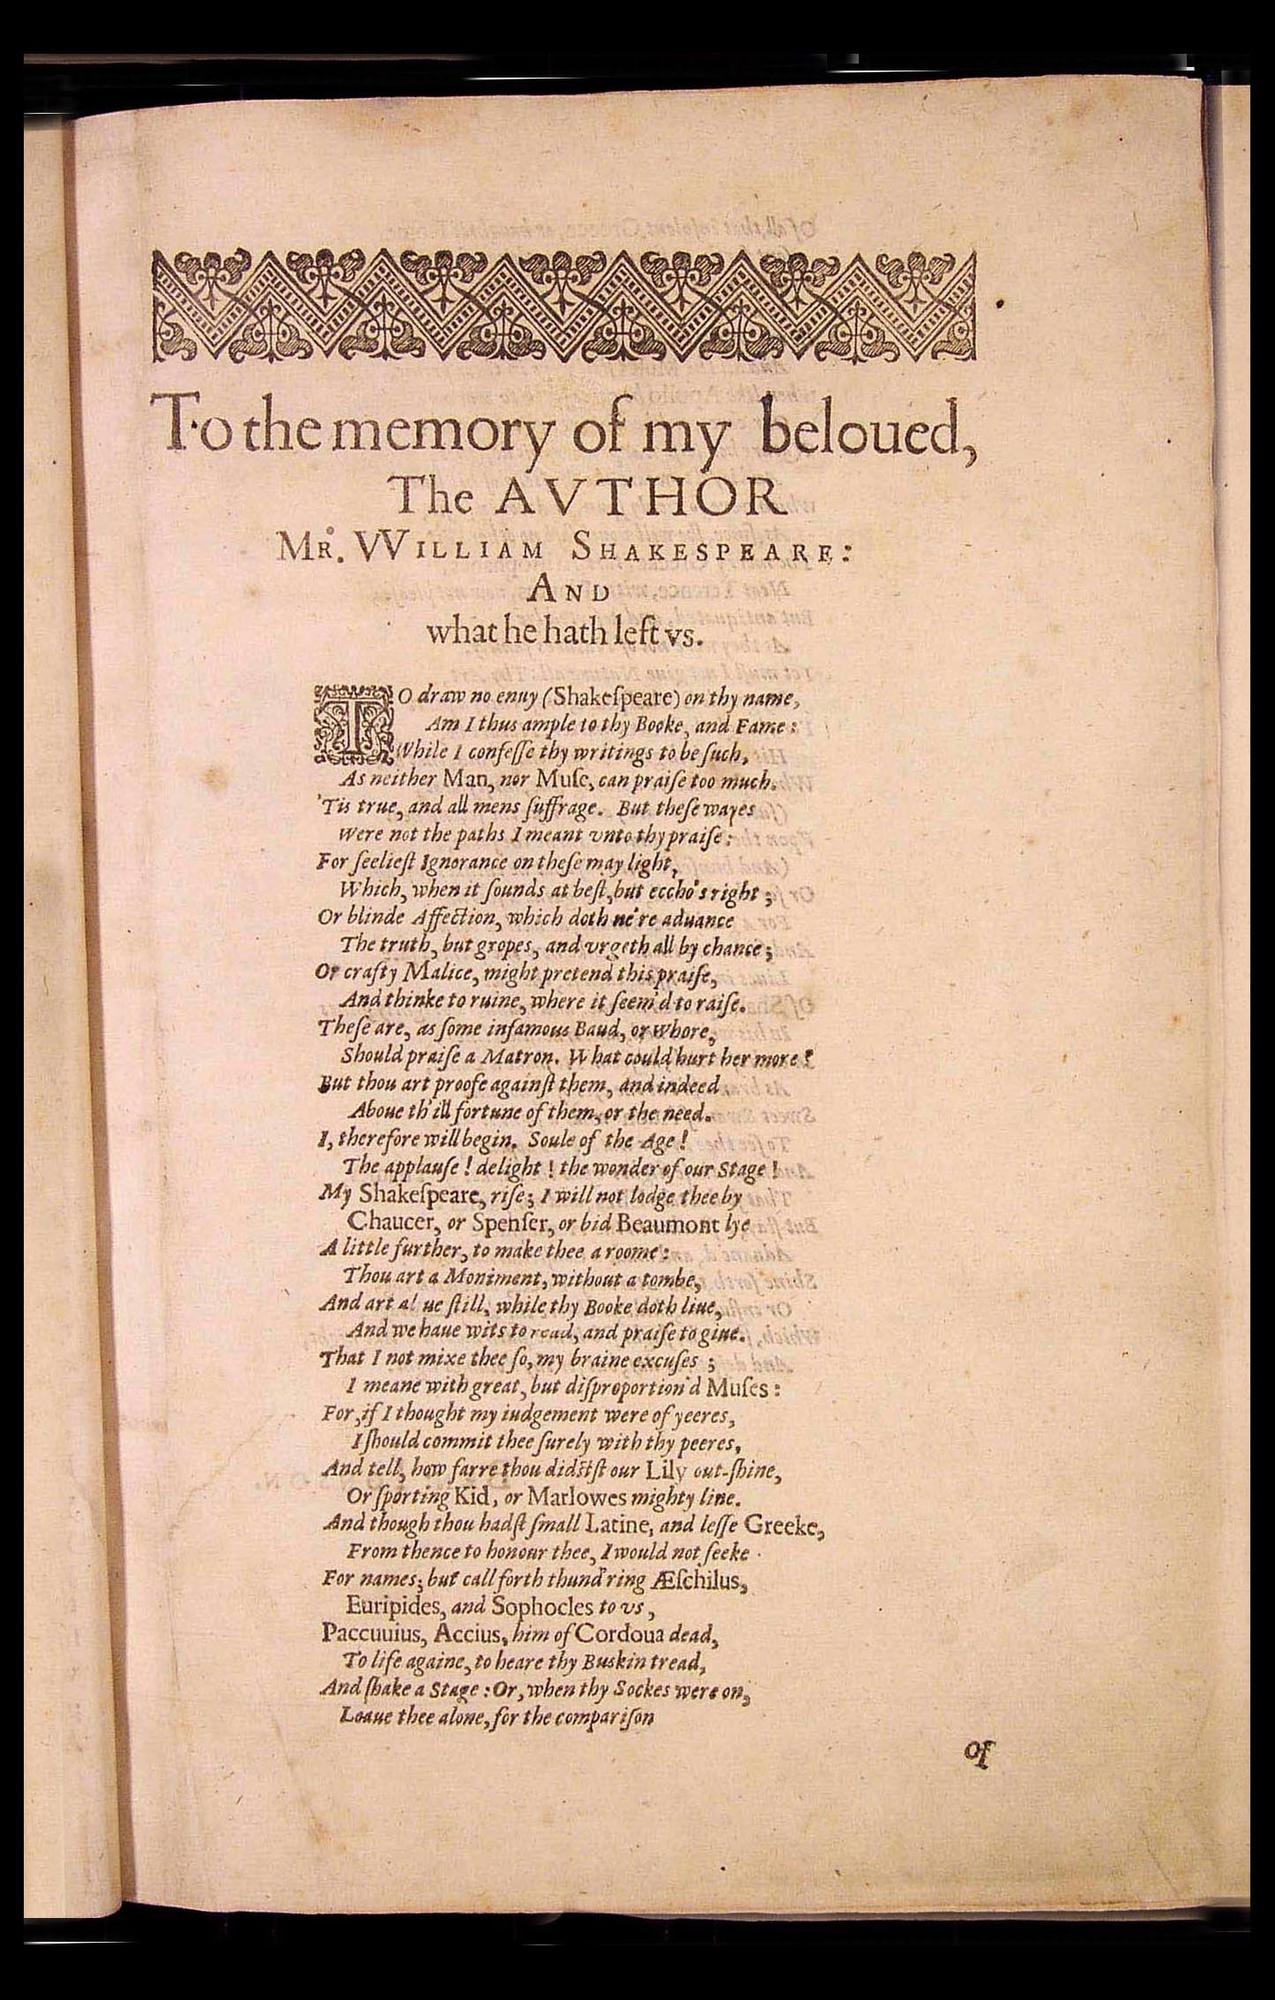 To the memory of my beloued,
The AVTHOR
MR. VVILLIAM SHAKESPEARE:
AND
what he hath left vs.
TO draw no enuy (Shakeſpeare) on thy name,
Am I thus ample to thy Booke, and Fame:
While I confeſſe thy writings to be ſuch,
As neither Man, nor Muſe, can praiſe too much.
'Tis true, and all mens ſuffrage. But theſe wayes
Were not the paths I meant vnto thy praiſe:
For ſeelieſt Ignorance on theſe may light,
Which, when it ſounds at beſt, but eccho's right;
Or blinde Affection, which doth ne're aduance
The truth, but gropes, and vrgeth all by chance;
Or crafty Malice, might pretend this praiſe,
And thinke to ruine, where it ſeem'd to raiſe.
Theſe are, as ſome infamous Baud, or Whore,
Should praiſe a Matron. What could hurt her more?
But thou art proofe againſt them, and indeed
Aboue th'ill fortune of them, or the need.
I, therefore will begin. Soule of the Age!
The applauſe! delight! the wonder of our Stage!
My Shakeſpeare, riſe; I will not lodge thee by
Chaucer, or Spenſer, or bid Beaumont lye
A little further, to make thee a roome:
Thou art a Moniment, without a tombe,
And art al ue ſtill, while thy Booke doth liue,
And we haue wits to read, and praiſe to giue.
That I not mixe thee ſo, my braine excuſes;
I meane with great, but diſproportion'd Muſes:
For, if I thought my iudgement were of yeeres,
I ſhould commit thee ſurely with thy peeres,
And tell, how farre thou didſtſt our Lily out-ſhine,
Or ſporting Kid, or Marlowes mighty line.
And though thou hadſt ſmall Latine, and leſſe Greeke,
From thence to honour thee, I would not ſeeke
For names; but call forth thund'ring Æſchilus,
Euripides, and Sophocles to vs,
Paccuuius, Accius, him of Cordoua dead,
To life againe, to heare thy Buskin tread,
And ſhake a Stage: Or, when thy Sockes were on,
Leaue thee alone, for the compariſon
Of